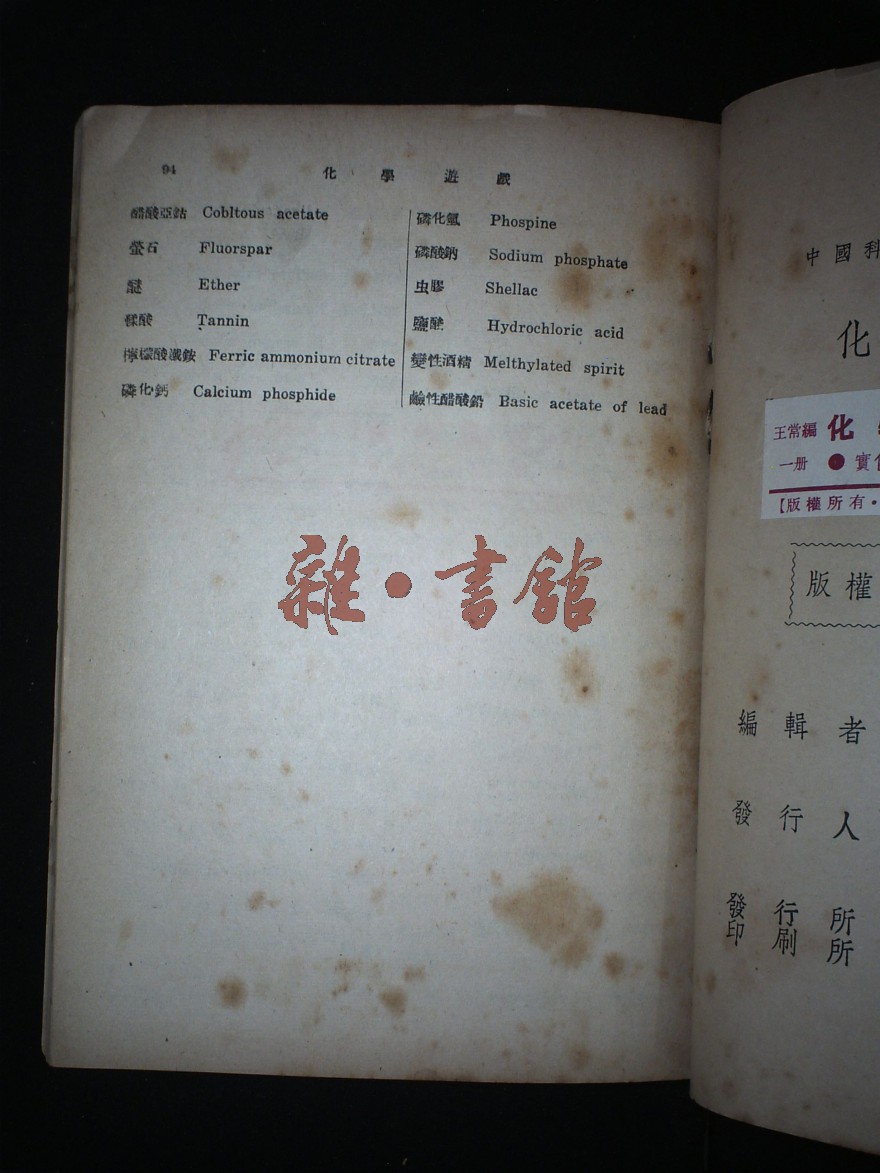 94
化學遊戲
醋酸亞鈷 Cobltous acetate
螢石 Fluorspar
醚 Ether
鞣酸 Tannin
檸檬酸鐵銨 Ferric ammonium citrate
磷化鈣 Calcium phosphide
磷化氫 Phospine
磷酸鈉 Sodium phosphate
虫膠 Shellac
鹽酸 Hydrochloric acid
變性酒精 Melthylated spirit
鹼性醋酸鉛 Basic acetate of lead
雜•書館
中國科
化
王常編 化
一册 ● 實
【版權所有•
版權
編輯者
發行人
發行所
印刷所